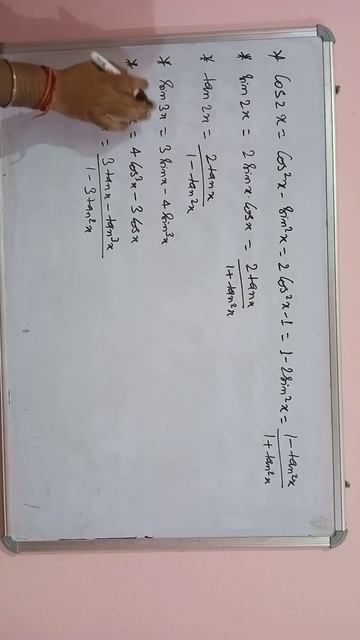 * cos2x = cos²x - sin²x = 2cos²x-1 = 1-2sin²x = (1-tan²x)/(1+tan²x)
* sin2x = 2sinx·cosx = 2tanx/(1+tan²x)
* tan2x = 2tanx/(1-tan²x)
* sin3x = 3sinx-4sin³x
* = 4cos³x-3cosx
= (3tanx-tan³x)/(1-3tan²x)